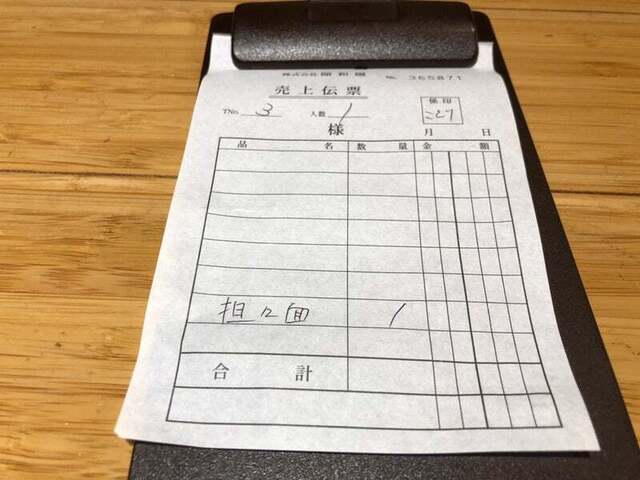 株式会社 No. 365871
売上伝票
TNo. 3 人数 1 係印
様 月 日
品 名 数 量 金 額
担々面 1
合 計